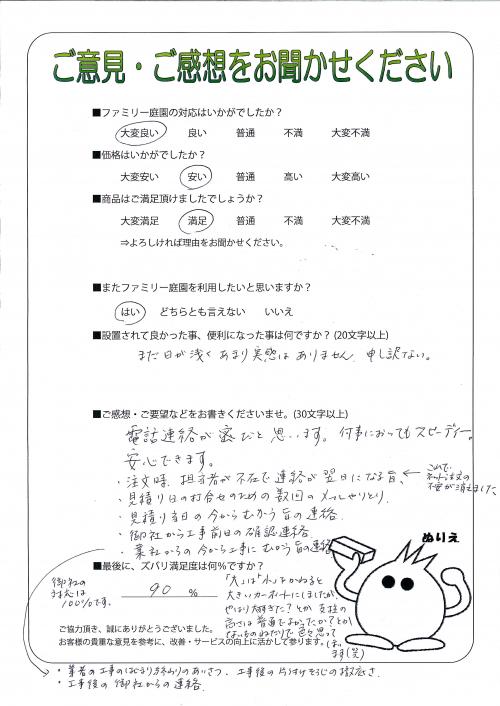 ご意見・ご感想をお聞かせください
■ファミリー庭園の対応はいかがでしたか？
大変良い 良い 普通 不満 大変不満
■価格はいかがでしたか？
大変安い 安い 普通 高い 大変高い
■商品はご満足頂けましたでしょうか？
大変満足 満足 普通 不満 大変不満
⇒よろしければ理由をお聞かせください。
■またファミリー庭園を利用したいと思いますか？
はい どちらとも言えない いいえ
■設置されて良かった事、便利になった事は何ですか？(20文字以上)
まだ日が浅くあまり実感はありません。申し訳ない。
■ご感想・ご要望などをお書きくださいませ。(30文字以上)
電話連絡が密だと思います。何事においてもスピーディー。
安心できます。
・注文時、担当者が不在で連絡が翌日になる旨、
これで、
ネット注文の
不安が消えました、
・見積り日の打合せのための数回のメールやりとり。
・見積り当日の今からむかう旨の連絡。
・御社から工事前日の確認連絡。
・業社からの今から工事にむかう旨の連絡
■最後に、ズバリ満足度は何％ですか？
90 ％
御社の
対応は
100％です。
「大」は「小」をかねると
大きいカーポートにしましたが
やはり大きすぎた？とか 支柱の
高さは普通でよかったか？とか
ないものねだりで色々思って
ます(笑)
ぬりえ
ご協力頂き、誠にありがとうございました。
お客様の貴重な意見を参考に、改善・サービスの向上に活かして参ります。
・業者の工事のはじまり終わりのあいさつ、工事後の片づけそうじの徹底さ。
・工事後の御社からの連絡